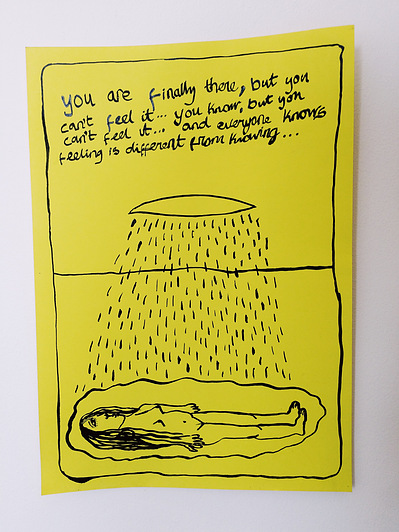 you are finally there, but you
can't feel it... you know, but you
can't feel it... and everyone knows
feeling is different from knowing...